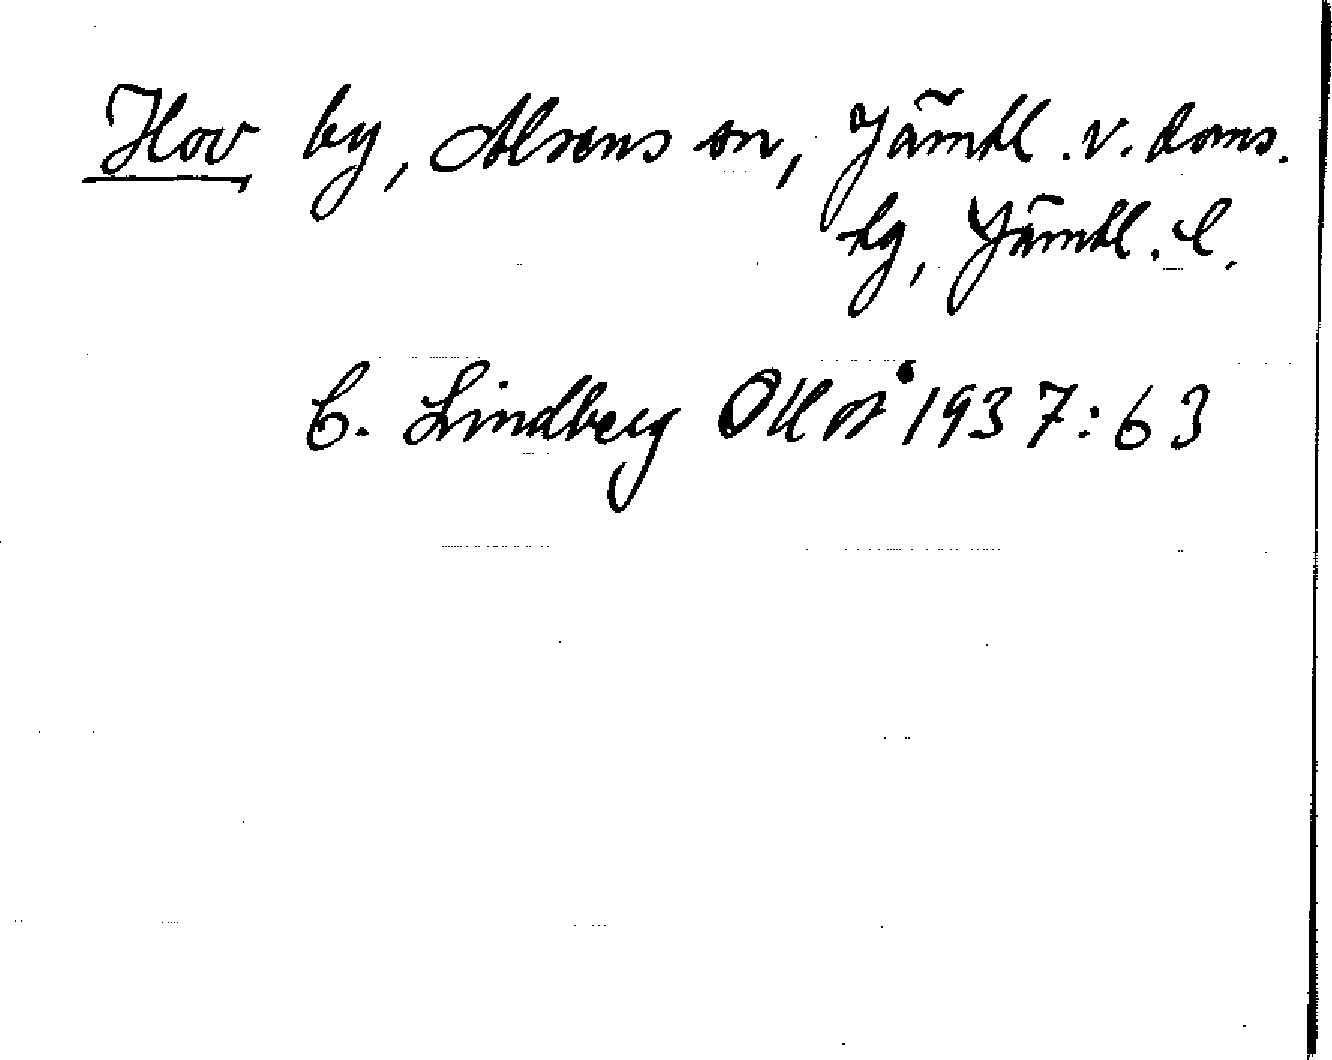 Hov by, Alsens sn, Jämtl. v. doms.
tg, Jämtl. l.
C. Lindberg 1937:63